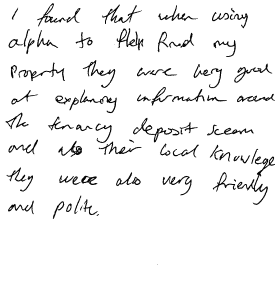 I found that when using
alpha to help find my
Property they were very good
at explaining information around
the tenancy deposit sceam
and also their local knowledge
they were also very friendly
and polite.